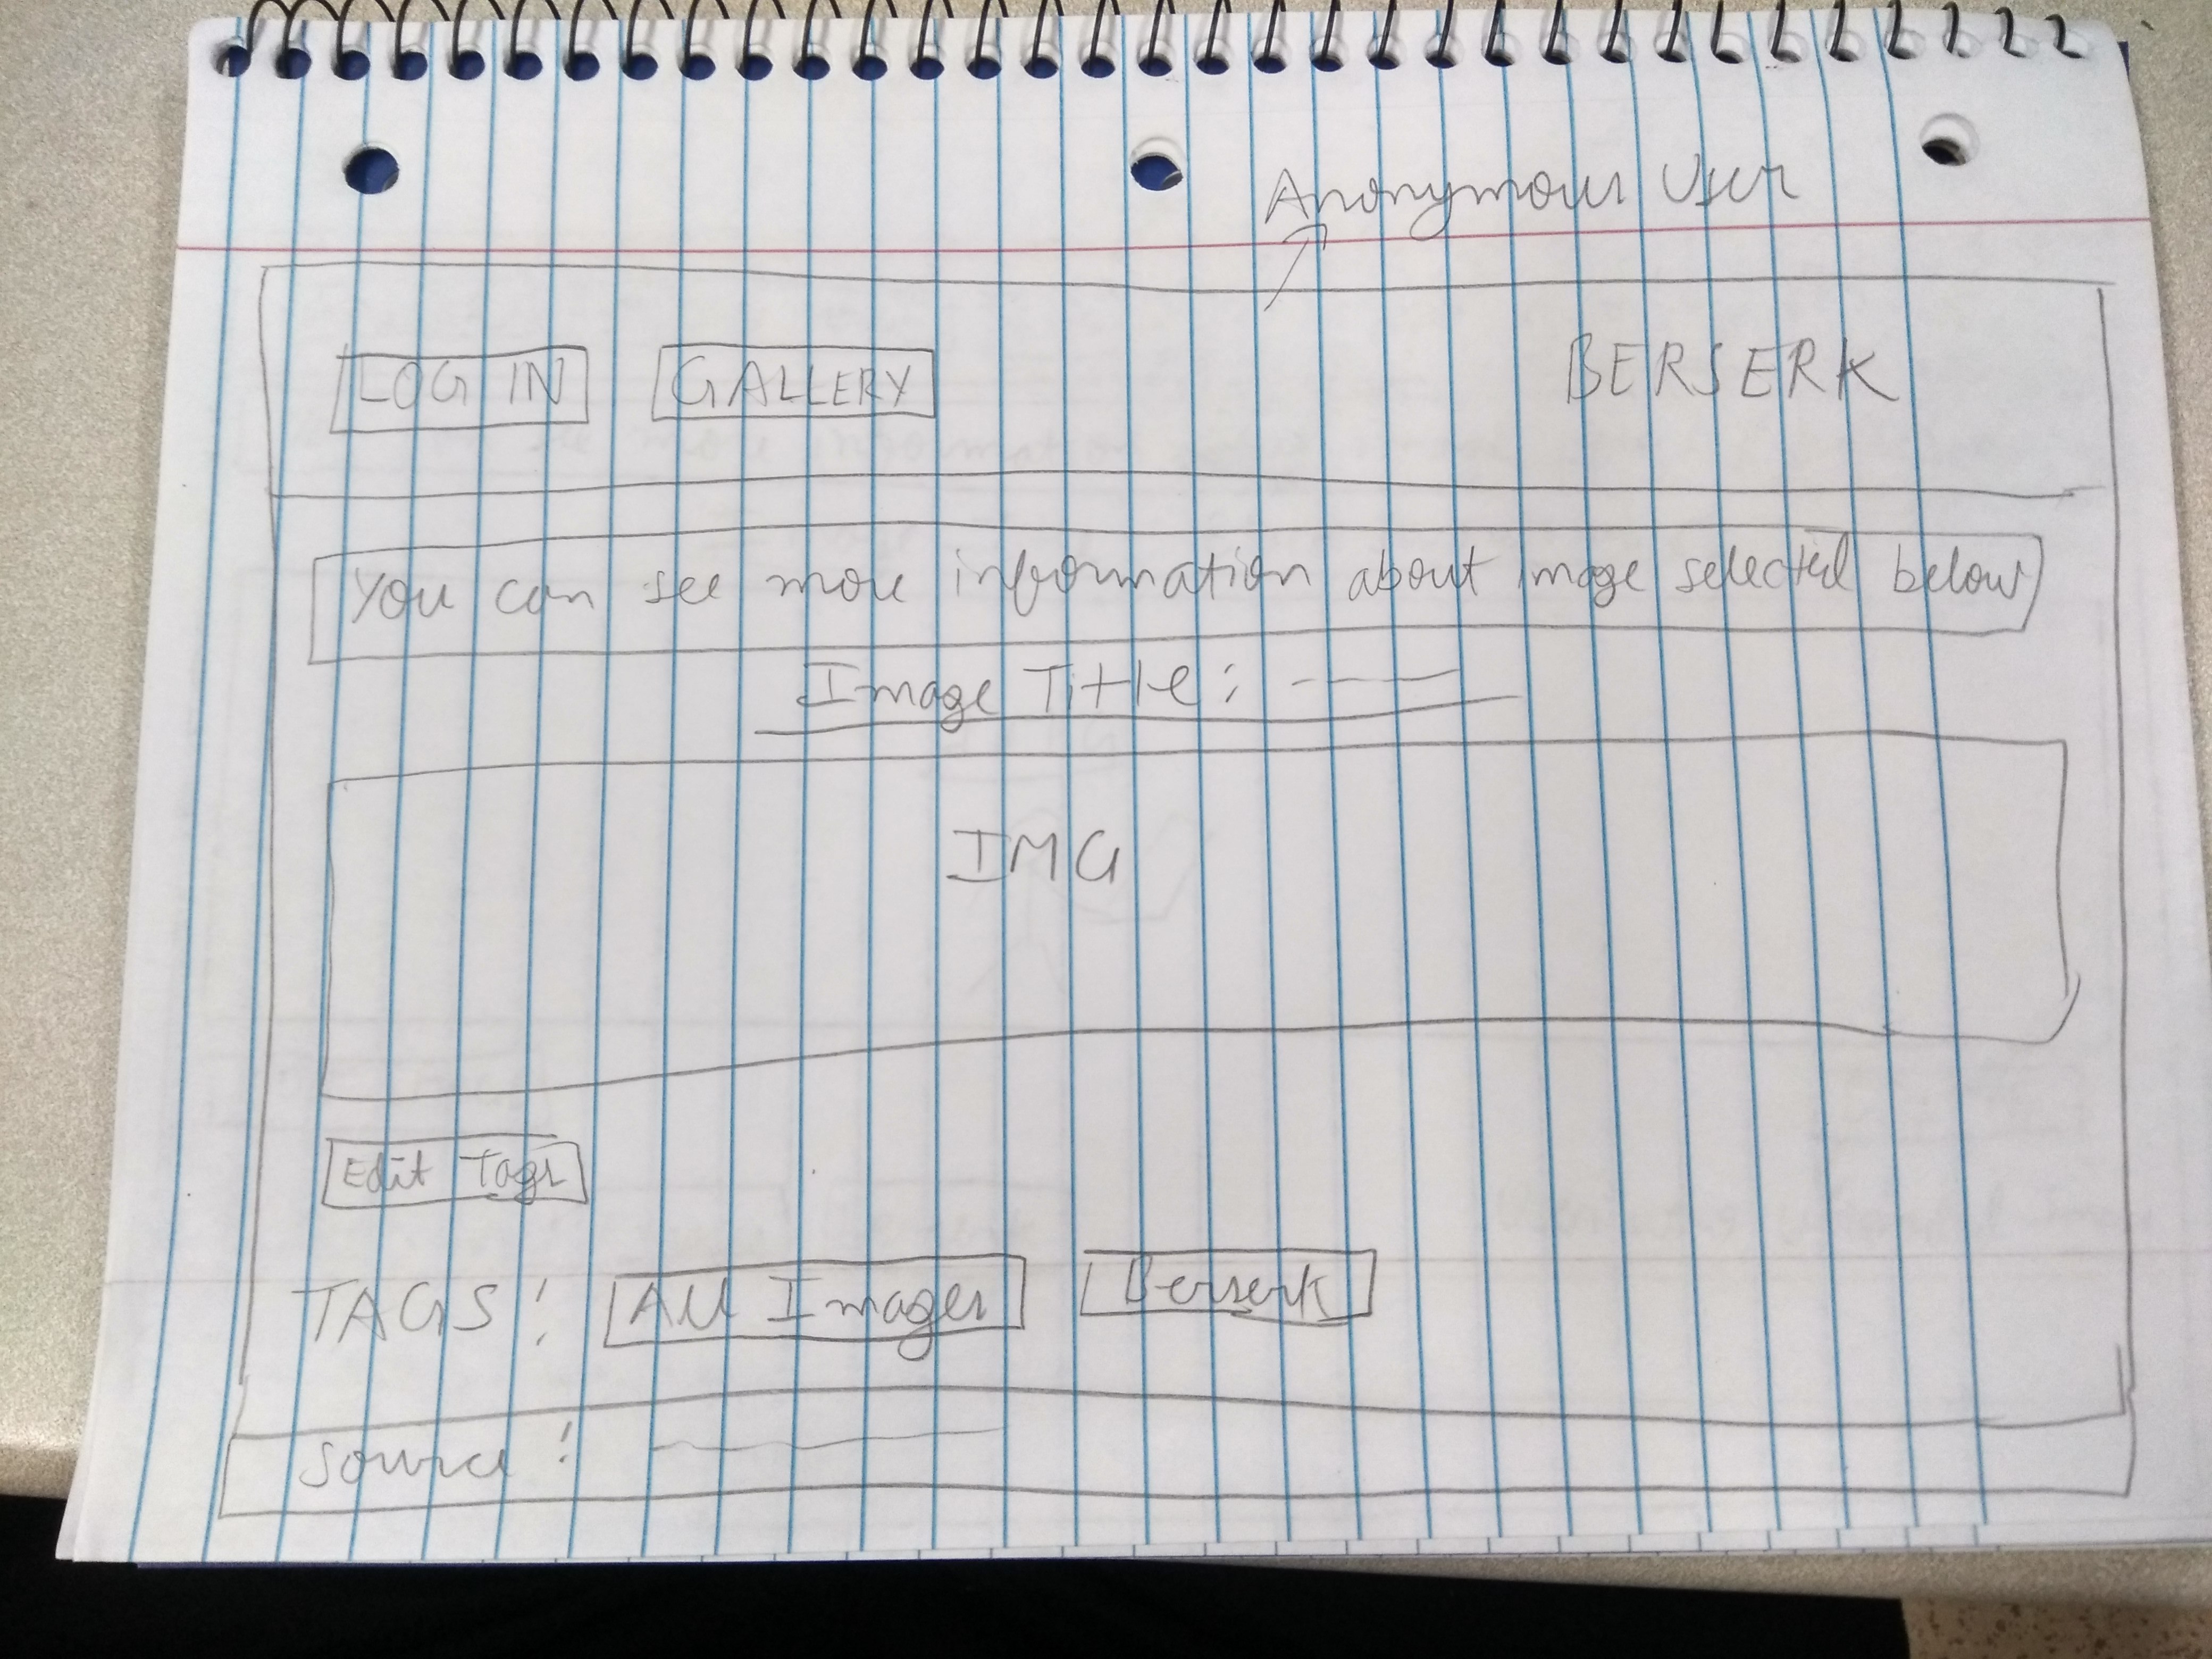 Anonymous User
LOG IN GALLERY BERSERK
You can see more information about image selected below
Image Title:
IMG
Edit Tags
TAGS: All Images Berserk
Source: